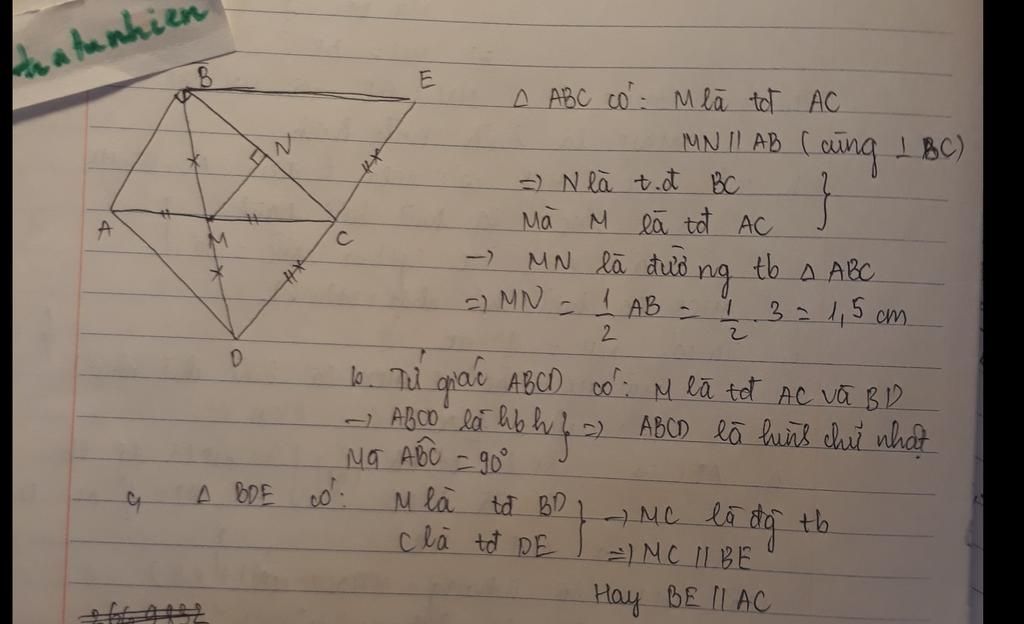 tratunhien
B
E
N
A
M
C
D
Δ ABC có: M là tđ AC
MN // AB (cùng ⊥ BC)
=> N là t.đ BC
Mà M là tđ AC
→ MN là đường tb Δ ABC
=> MN = 1/2 AB = 1/2 . 3 = 1,5 cm
b. Tứ giác ABCD có: M là tđ AC và BD
→ ABCD là hbh } => ABCD là hình chữ nhật
Mà ABC = 90°
c, Δ BDE có: M là tđ BD } → MC là đg tb
C là tđ DE => MC // BE
Hay BE // AC